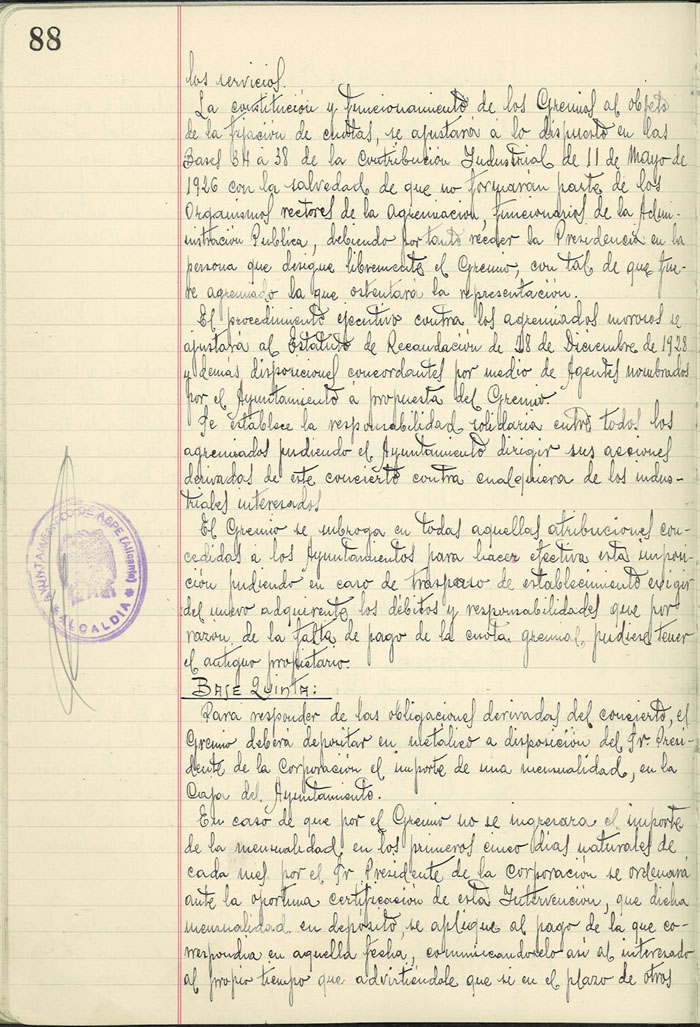 88
los servicios.
La constitución y funcionamiento de los Gremios al objeto
de la fijación de cuotas, se ajustará a lo dispuesto en las
Bases 34 a 38 de la Contribución Industrial de 11 de Mayo de
1926 con la salvedad de que no formarán parte de los
Organismos rectores de la Agremiación, funcionarios de la Admi-
nistración Pública, debiendo por tanto recaer la Presidencia en la
persona que designe libremente el Gremio, con tal de que fue-
re agremiado la que ostentará la representación.
El procedimiento ejecutivo contra los agremiados morosos se
ajustará al Estatuto de Recaudación de 18 de Diciembre de 1928
y demas disposiciones concordantes por medio de Agentes nombrados
por el Ayuntamiento a propuesta del Gremio.
Se establece la responsabilidad solidaria entre todos los
agremiados pudiendo el Ayuntamiento dirigir sus acciones
derivadas de este concierto contra cualquiera de los indus-
triales interesados
El Gremio se subroga en todas aquellas atribuciones con-
cedidas a los Ayuntamientos para hacer efectiva esta imposi-
ción pudiendo en caso de traspaso de establecimiento exigir
del nuevo adquirente los débitos y responsabilidades que por
razón de la falta de pago de la cuota gremial pudiese tener
el antiguo propietario.
BASE Quinta:
Para responder de las obligaciones derivadas del concierto, el
Gremio deberá depositar en metálico a disposición del Sr Presi-
dente de la Corporación el importe de una mensualidad, en la
Caja del Ayuntamiento.
En caso de que por el Gremio no se ingresara el importe
de la mensualidad en los primeros cinco días naturales de
cada mes por el Sr. Presidente de la Corporación se ordenará
ante la oportuna certificación de esta Intervención, que dicha
mensualidad en depósito, se aplique al pago de la que co-
rrespondia en aquella fecha, comunicandoselo así al interesado
al propio tiempo que advirtiéndole que si en el plazo de otros
AYUNTAMIENTO DE ASPE (Alicante)
★ ALCALDIA ★